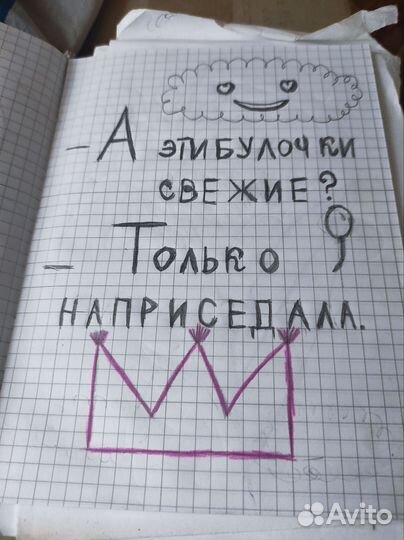 - А ЭТИ БУЛОЧКИ
СВЕЖИЕ?
- Только
НАПРИСЕДАЛА.
Avito